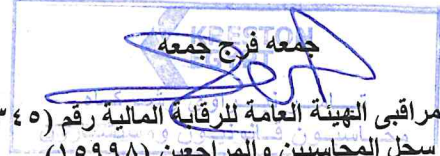 KRESTON
جمعه فرج جمعه
مراقبى الهيئة العامة للرقابة المالية رقم (٣٤٥
سجل المحاسبين والمراجعين (١٥٩٩٨)